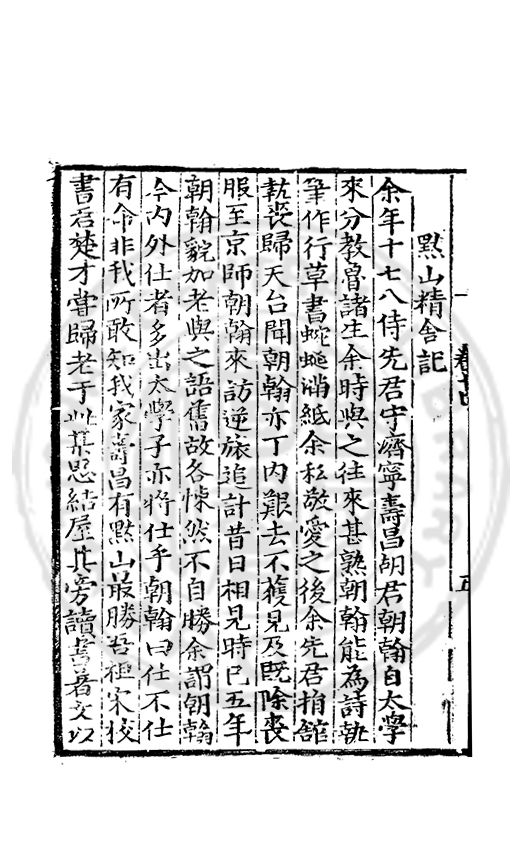 黙山精舍記
余年十七八侍先君守濟寧壽昌胡君朝翰自太學
來分教魯諸生余時與之往來甚熟朝翰能為詩執
筆作行草書蜿蜒滿紙余私敬愛之後余先君捐舘
執喪歸天台聞朝翰亦丁內艱去不獲見及既除喪
服至京師朝翰來訪逆旅追計昔日相見時已五年
朝翰貌加老與之語舊故各悚然不自勝余謂朝翰
今內外仕者多出太學子亦將仕乎朝翰曰仕不仕
有命非我所敢知我家壽昌有黙山最勝吾祖宋校
書君楚才嘗歸老于此某思結屋其旁讀書著文以